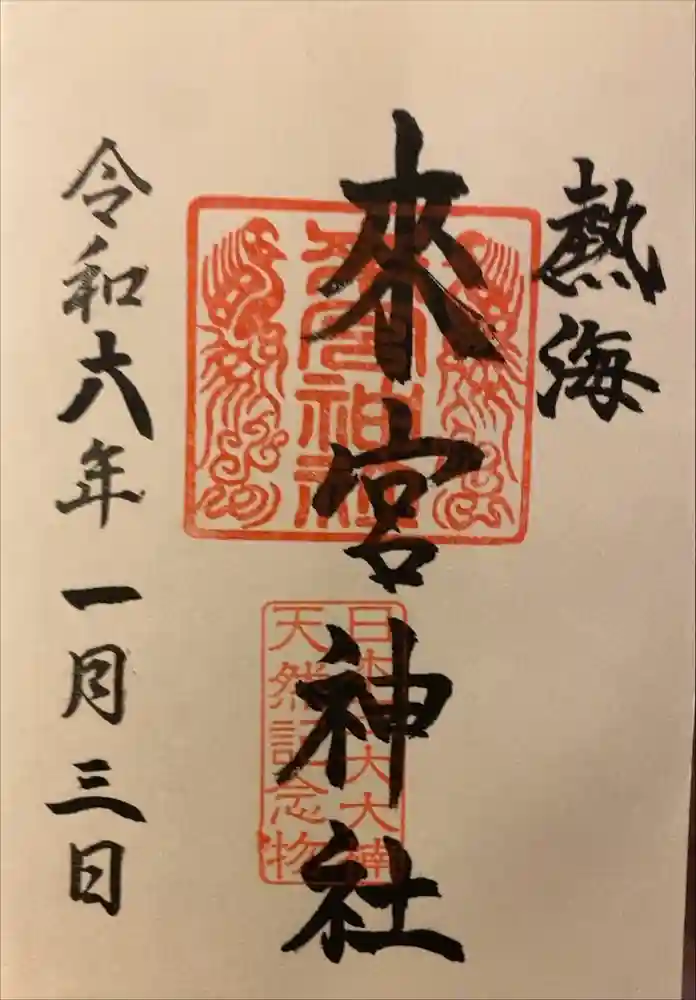 熱海
來宮神社
來宮神社
日本三大大楠
天然記念物
令和六年一月三日